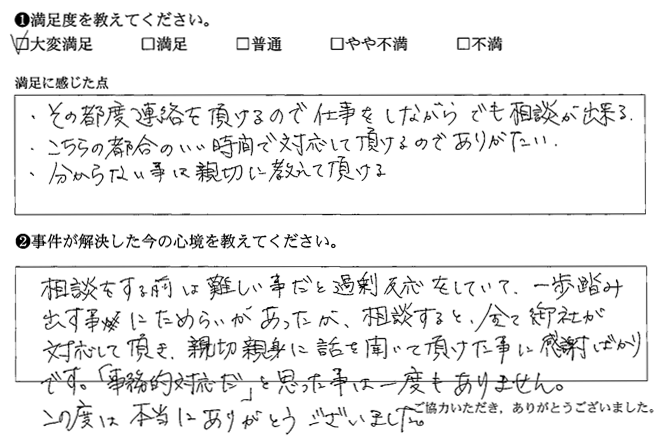 ❶満足度を教えてください。
☑大変満足 □満足 □普通 □やや不満 □不満
満足に感じた点
・その都度連絡を頂けるので仕事をしながらでも相談が出来る.
・こちらの都合のいい時間で対応して頂けるのでありがたい.
・分からない事は親切に教えて頂ける
❷事件が解決した今の心境を教えてください。
相談をする前は難しい事だと過剰反応をしていて、一歩踏み
出す事にためらいがあったが、相談すると、全て御社が
対応して頂き、親切親身に話を聞いて頂けた事に感謝ばかり
です。「事務的対応だ」と思った事は一度もありません。
この度は本当にありがとうございました。
ご協力いただき、ありがとうございました。